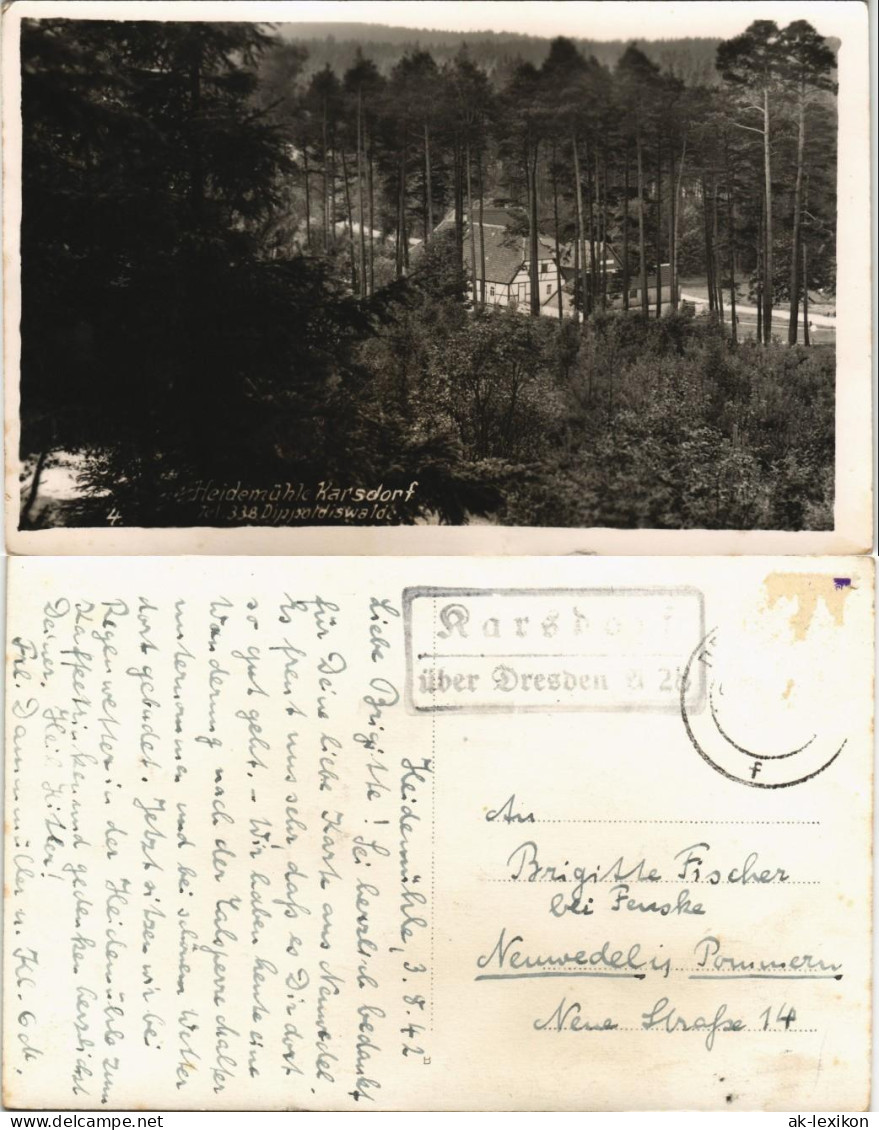 Heidemühle Karsdorf
4. Tel. 338 Dippoldiswalde
Karsdorf
über Dresden A 28
f
Heidemühle, 3.8.42
Liebe Brigitte! Sei herzlich bedankt
für Deine liebe Karte aus Neuwedel.
Es freut uns sehr, daß es Dir dort
so gut geht. – Wir haben heute eine
Wanderung nach der Talsperre Malter
unternommen und bei schönem Wetter
dort gebadet. Jetzt sitzen wir bei
Regenwetter in der Heidemühle zum
Kaffeetrinken und gedenken herzlichst
Deiner. Heil Hitler!
Frl. Dammüller u. Kl. 6 M.
An
Brigitte Fischer
bei Fenske
Neuwedel i/ Pommern
Neue Straße 14
ak-lexikon